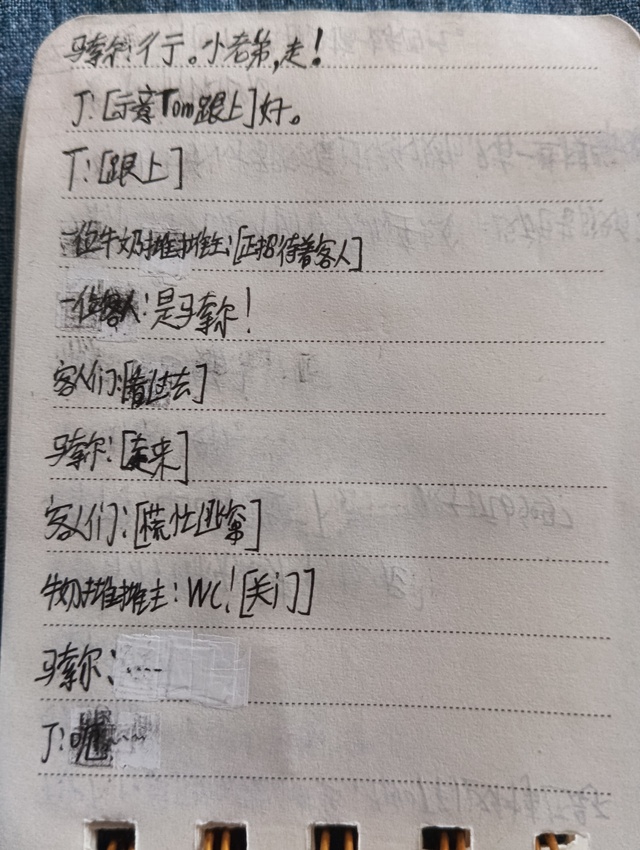 马索尔:行。小老弟,走!
J:[示意Tom跟上]好。
T:[跟上]
一位牛奶摊摊主:[正招待着客人]
一位客人:是马索尔!
客人们:[看过去]
马索尔:[走来]
客人们:[慌忙逃窜]
牛奶摊摊主:WC![关门]
马索尔:……
J:呃……